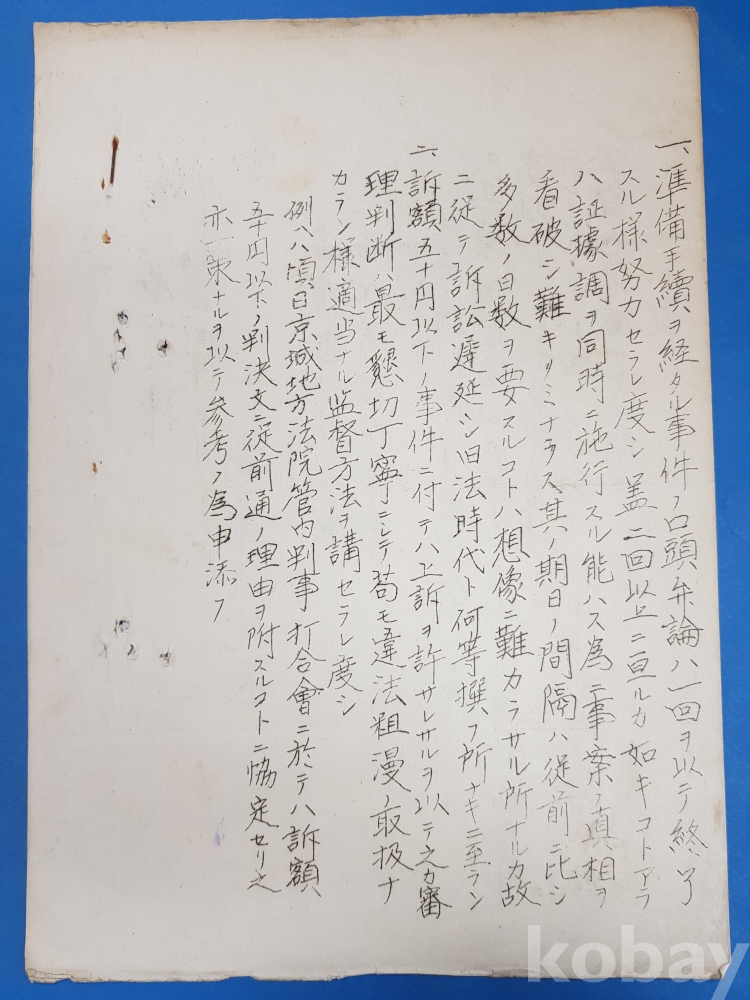 一、準備手續ヲ経タル事件ノ口頭弁論ハ一回ヲ以テ終了
スル様努力セラレ度シ蓋二回以上ニ亘ルカ如キコトアラ
ハ証據調ヲ同時ニ施行スル能ハス為ニ事案ノ真相ヲ
看破シ難キノミナラス其ノ期日ノ間隔ハ従前ニ比シ
多数ノ日数ヲ要スルコトハ想像ニ難カラサル所ナルカ故
ニ従テ訴訟遅延シ旧法時代ト何等撰フ所ナキニ至ラン
二、訴額五十円以下ノ事件ニ付テハ上訴ヲ許サレサルヲ以テ之カ審
理判断ハ最モ懇切丁寧ニシテ苟モ違法粗漫ノ取扱ナ
カラン様適当ナル監督方法ヲ講セラレ度シ
例ヘハ頃日京城地方法院管内判事打合會ニ於テハ訴額
五十円以下ノ判決文ニ従前通ノ理由ヲ附スルコトニ協定セリ之
亦一策ナルヲ以テ参考ノ為申添フ
kobay